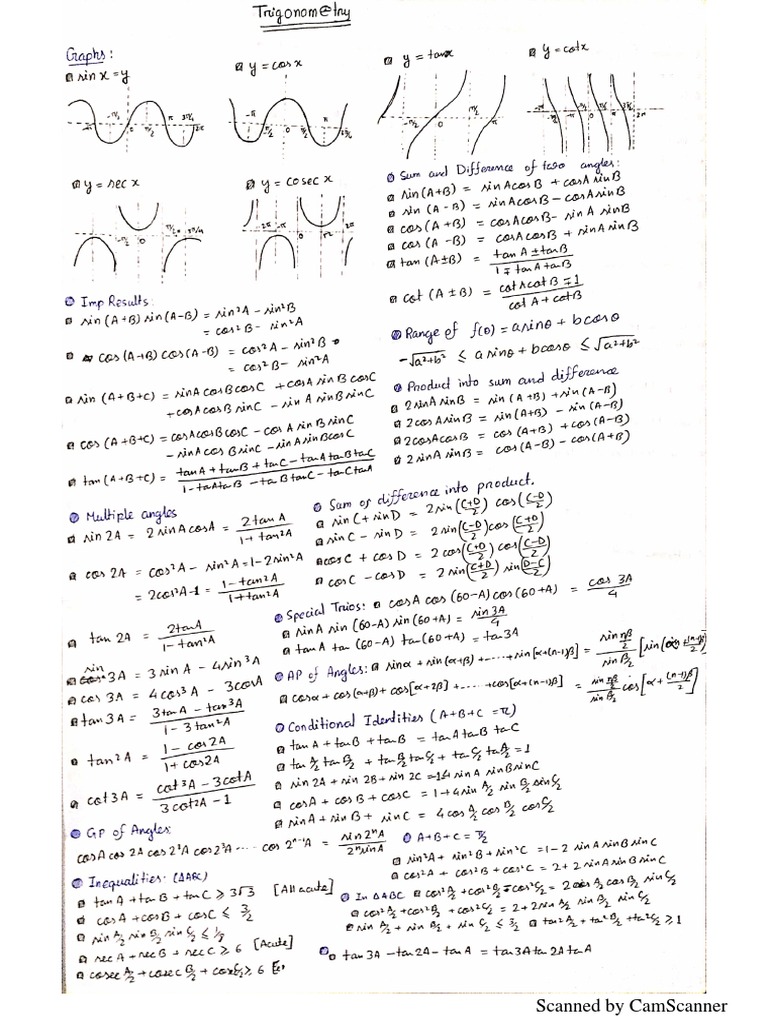 Trigonometry
Graphs:
sin x = y
y = cos x
y = tanx
y = cotx
y = sec x
y = cosec x
Sum and Difference of two angles:
sin(A+B) = sinAcosB + cosAsinB
sin (A-B) = sinAcosB - cosAsinB
cos (A+B) = cosAcosB - sinA sinB
cos (A-B) = cosAcosB + sinA sinB
tan (A±B) = tanA ± tanB / 1∓tanA tanB
cot (A±B) = cotA cotB ∓ 1 / cotA + cotB
Imp Results:
sin (A+B) sin(A-B) = sin²A - sin²B
= cos²B - sin²A
cos (A+B) cos (A-B) = cos²A - sin²B
= cos²B - sin²A
sin (A+B+C) = sinA cosBcosC + cosA sinB cosC
+ cosA cosB sinC - sinA sinB sinC
cos (A+B+C) = cosAcosBcosC - cosA sinB sinC
- sinA cosB sinC - sinA sinB cosC
tan (A+B+C) = tanA + tanB + tanC - tanA tanB tanC / 1 - tanA tanB - tanB tanC - tanC tanA
Range of f(θ) = asinθ + bcosθ
-√a²+b² ≤ asinθ + bcosθ ≤ √a²+b²
Product into sum and difference
2sinA sinB = sin (A+B) + sin (A-B)
2cosA sinB = sin(A+B) - sin (A-B)
2cosAcosB = cos (A+B) + cos(A-B)
2 sinA sinB = cos(A-B) - cos(A+B)
Multiple angles
sin 2A = 2 sinA cosA = 2tanA / 1+tan²A
cos 2A = cos²A - sin²A = 1-2sin²A
= 2cos²A-1 = 1-tan²A / 1+tan²A
tan 2A = 2tanA / 1-tan²A
sin 3A = 3 sinA - 4sin³A
cos 3A = 4cos³A - 3cosA
tan 3A = 3tanA - tan³A / 1-3tan²A
tan²A = 1-cos2A / 1+cos2A
cot 3A = cot³A - 3cotA / 3cot²A - 1
Sum or difference into product.
sin C + sin D = 2sin(C+D/2) cos(C-D/2)
sin C - sin D = 2sin(C-D/2)cos(C+D/2)
cosC + cos D = 2cos(C+D/2)cos(C-D/2)
cosC - cos D = 2sin(C+D/2)sin(D-C/2)
Special Trios: cosA cos(60-A)cos(60+A) = cos 3A / 4
sinA sin(60-A) sin(60+A) = sin3A / 4
tanA tan(60-A) tan(60+A) = tan3A
AP of Angles: sinα + sin(α+β) + ..... + sin[α+(n-1)β] = sin nβ/2 / sin β/2 [sin(α + (n-1)β/2)]
cosα + cos(α+β) + cos[α+2β] + ..... + cos[α+(n-1)β] = sin nβ/2 / sin β/2 cos[α + (n-1)β/2]
Conditional Identities (A+B+C = π)
tanA + tanB + tanB = tanA tanB tanC
tan A/2 tan B/2 + tan B/2 tan C/2 + tan C/2 tan A/2 = 1
sin 2A + sin 2B + sin 2C = 4 sinA sinB sinC
cosA + cosB + cosC = 1+4sin A/2 sin B/2 sin C/2
sinA + sinB + sinC = 4cos A/2 cos B/2 cos C/2
GP of Angles:
cosA cos 2A cos 2²A cos 2³A ..... cos 2ⁿ⁻¹A = sin 2ⁿA / 2ⁿ sinA
A+B+C = π/2
sin²A + sin²B + sin²C = 1-2 sinA sinB sinC
cos²A + cos²B + cos²C = 2+2 sinA sinB sinC
Inequalities: (ΔABC)
tanA + tanB + tanC ≥ 3√3 [All acute]
cosA + cosB + cosC ≤ 3/2
sin A/2 sin B/2 sin C/2 ≤ 1/8
secA + secB + secC ≥ 6 [Acute]
cosec A/2 + cosec B/2 + cosec C/2 ≥ 6
In ΔABC cos² A/2 + cos² B/2 - cos² C/2 = 2cos A/2 cos B/2 sin C/2
cos² A/2 + cos² B/2 + cos² C/2 = 2+2sin A/2 sin B/2 sin C/2
sin A/2 + sin B/2 + sin C/2 ≤ 3/2 tan² A/2 + tan² B/2 + tan² C/2 ≥ 1
tan 3A - tan 2A - tanA = tan3A tan 2A tanA
Scanned by CamScanner